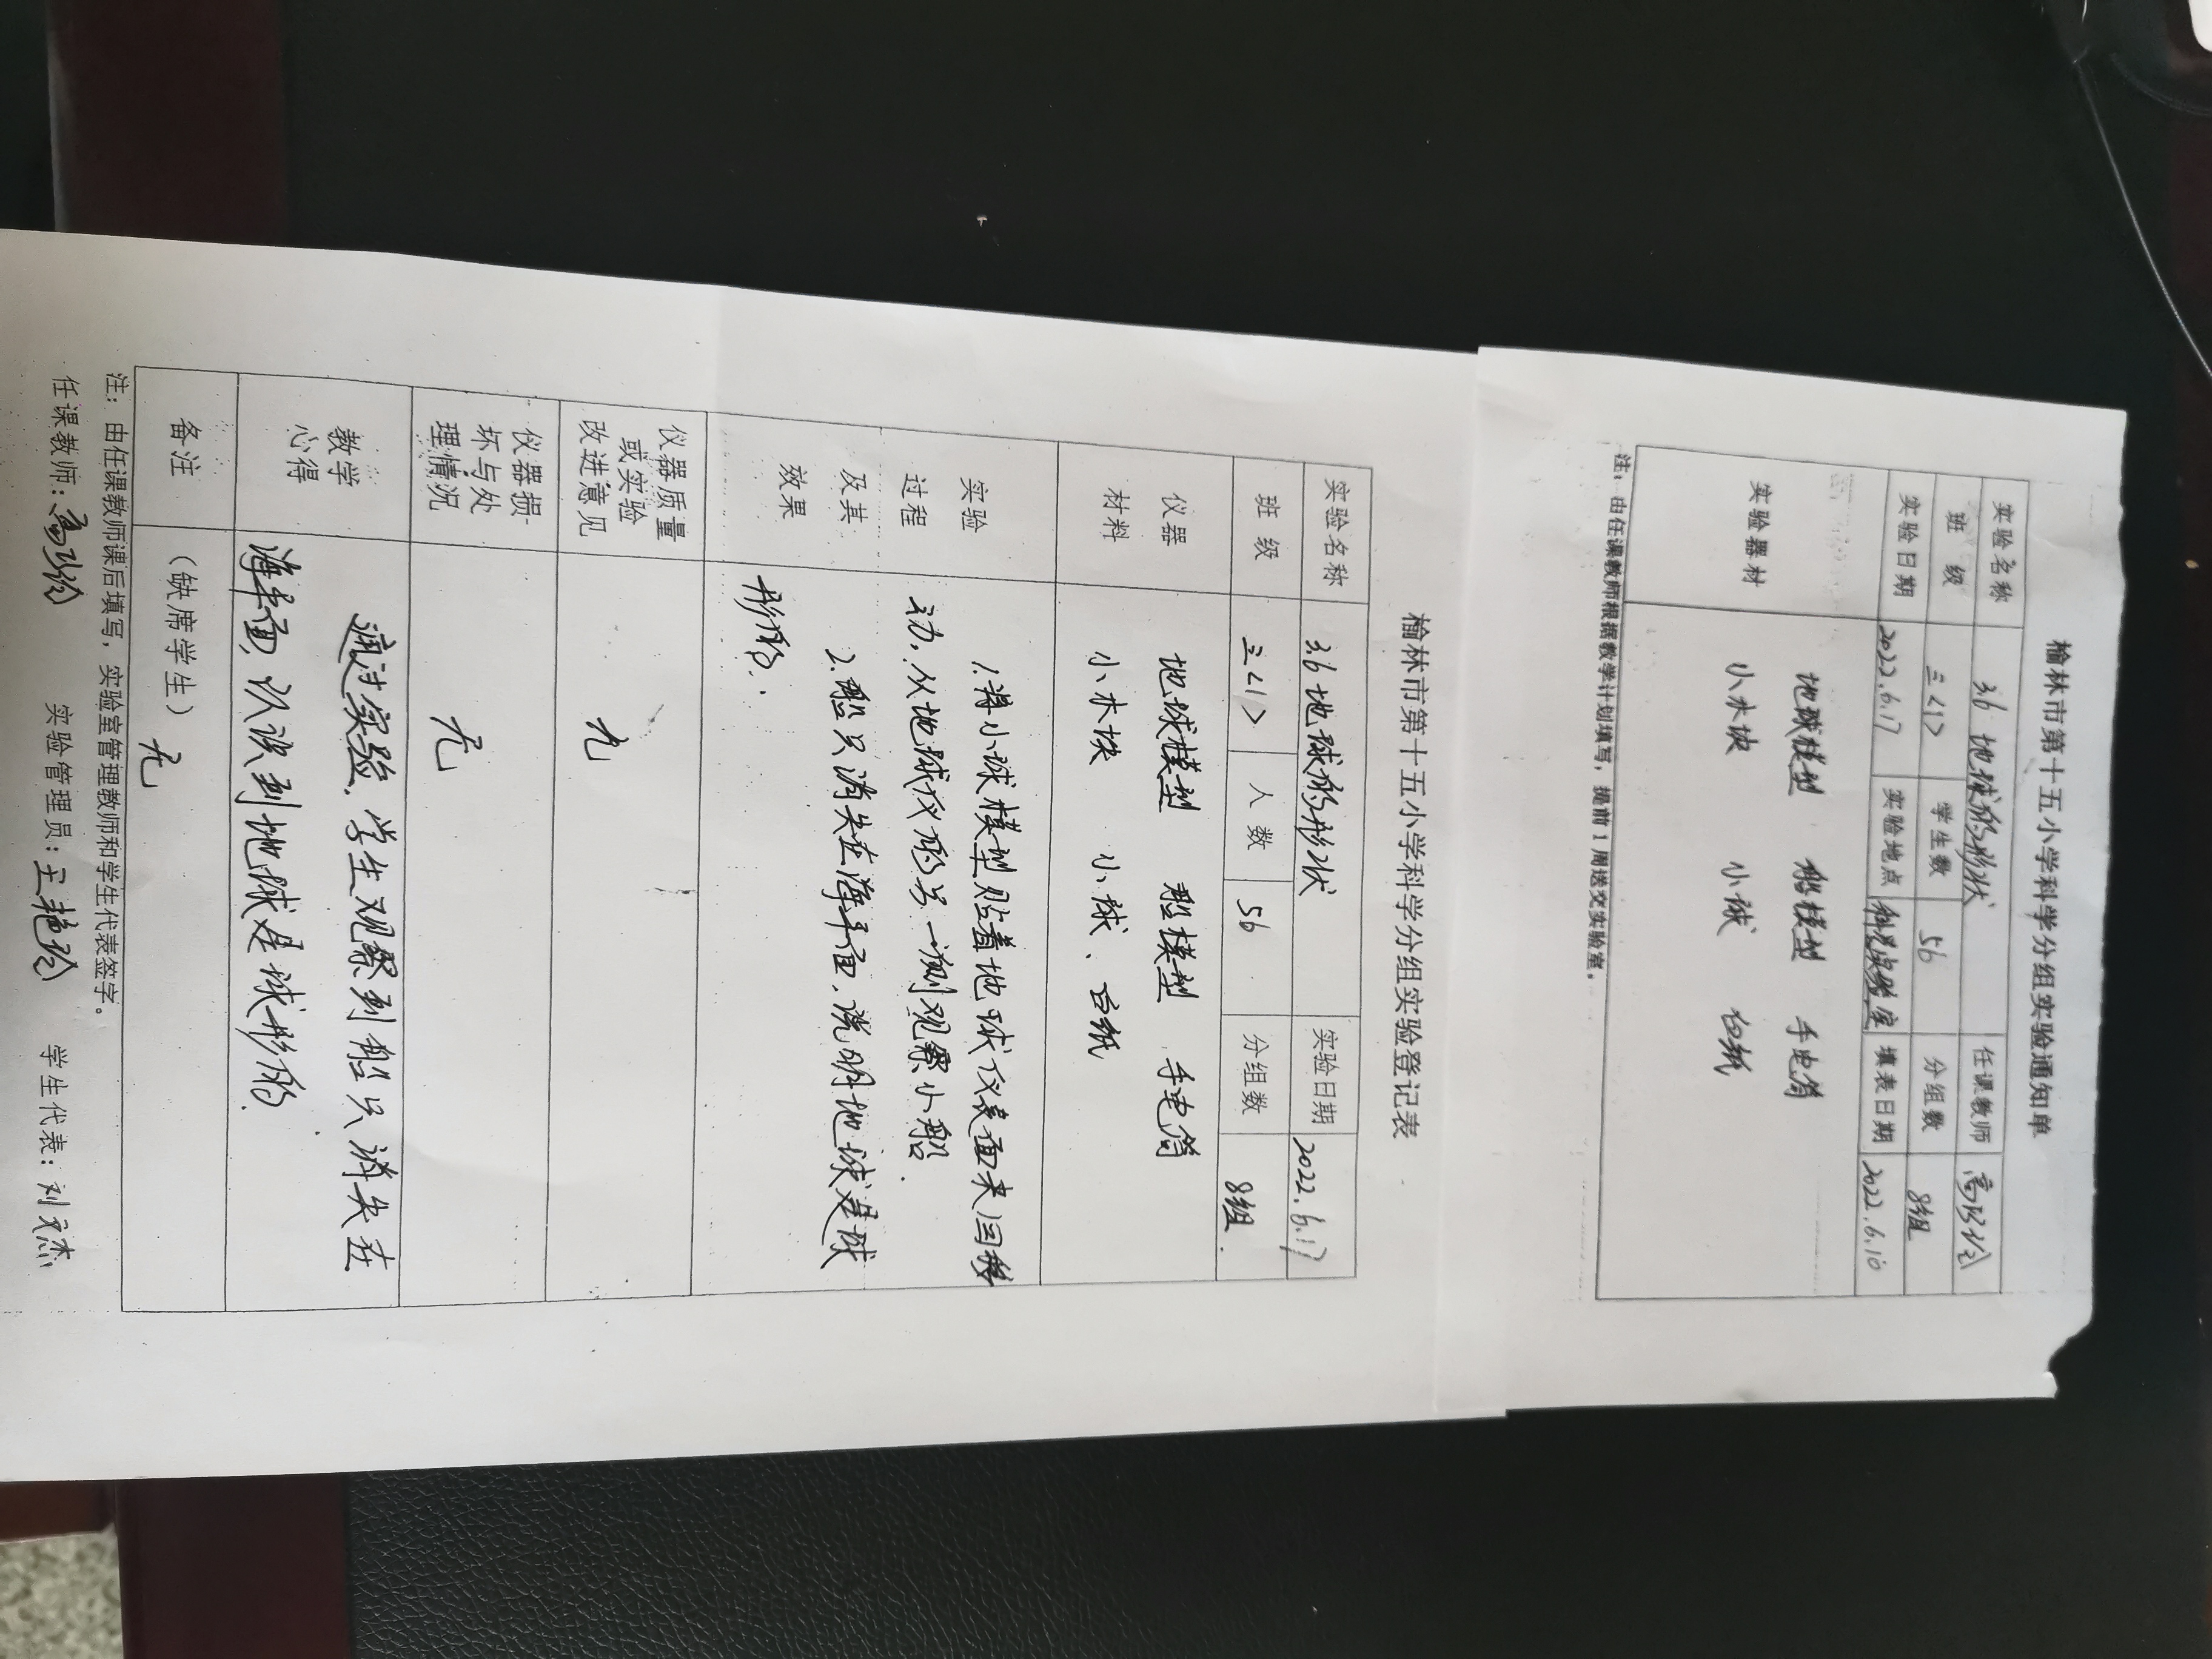 榆林市第十五小学科学分组实验通知单
实验名称 3.6 地球的形状 任课教师
班 级 三<1> 学生数 56 分组数 8组
实验日期 2022.6.17 实验地点 科学实验室 填表日期 2022.6.10
实验器材
地球模型 船模型 手电筒
小木块 小球 白纸
注：由任课教师根据教学计划填写，提前1周送交实验室。
榆林市第十五小学科学分组实验登记表
实验名称 3.6地球的形状 实验日期 2022.6.17
班 级 三<1> 人 数 56 分组数 8组.
仪器 地球模型 船模型 手电筒
材料 小木块 小球、白纸
实验 1.将小球模型贴着地球仪表面来回移
过程 动，从地球仪的另一侧观察小船.
及其 2.船只消失在海平面，说明地球是球
效果 形的.
仪器质量
或实验
改进意见
无
仪器损
坏与处
理情况
无
教学 通过实验，学生观察到船只消失在
心得 海平面，认识到地球是球形的.
备注 （缺席学生）无
注：由任课教师课后填写，实验室管理教师和学生代表签字。
任课教师： 实验管理员：王艳玲 学生代表：刘杰